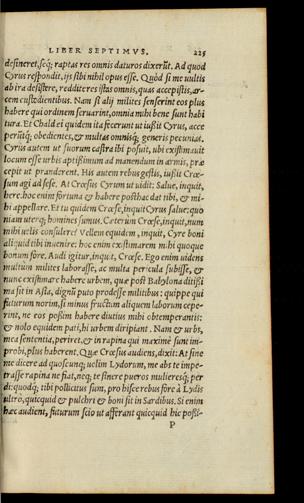 LIBER SEPTIMVS. 225
desineret, seq; raptas res omnis daturos dixerũt. Ad quod
Cyrus respõdit, ijs sibi nihil opus esse. Quòd si me uultis
ab ira desistere, reddite res istas omnis, quas accepistis, ar-
cem custodientibus. Nam si alij milites senserint eos plus
habere qui ordinem seruarint, omnia mihi bene sunt habi
tura. Et Chaldæi quidem ita fecerunt ut iussit Cyrus, acce
perũtq; obedientes, & multas omnisq; generis pecunias.
Cyrus autem ut suorum castra ibi posuit, ubi existimauit
locum esse urbis aptissimum ad manendum in armis, præ
cepit ut pranderent. His autem rebus gestis, iussit Crœ-
sum agi ad sese. At Crœsus Cyrum ut uidit: Salue, inquit,
here. hoc enim fortuna & habere posthac dat tibi, & mi-
hi appellare. Et tu quidem Crœse, inquit Cyrus salue: quo
niam uterq; homines sumus. Cæterùm Crœse, inquit, num
mihi uelis consulere? Vellem equidem, inquit, Cyre boni
aliquid tibi inuenire: hoc enim existimarem mihi quoque
bonum fore. Audi igitur, inquit, Crœse. Ego enim uidens
multùm milites laborasse, ac multa pericula subisse, &
nunc existimare habere urbem, quæ post Babylona ditissi
ma sit in Asia, dignũ puto prodesse militibus: quippe qui
futurum norim, si minus fructum aliquem laborum cepe-
rint, ne eos possim habere diutius mihi obtemperantis:
& nolo equidem pati, hi urbem diripiant. Nam & urbs,
mea sententia, periret, & in rapina qui maximè sunt im-
probi, plus haberent. Quæ Crœsus audiens, dixit: At sine
me dicere ad quoscunq; uelim Lydorum, me abs te impe-
trasse rapina ne fiat, neq; te sinere pueros mulieresq; per
di: quodq; tibi pollicitus sum, pro hisce rebus fore à Lydis
ultrò, quicquid & pulchri & boni sit in Sardibus. Si enim
hæc audient, futurum scio ut afferant quicquid hic possi-
P